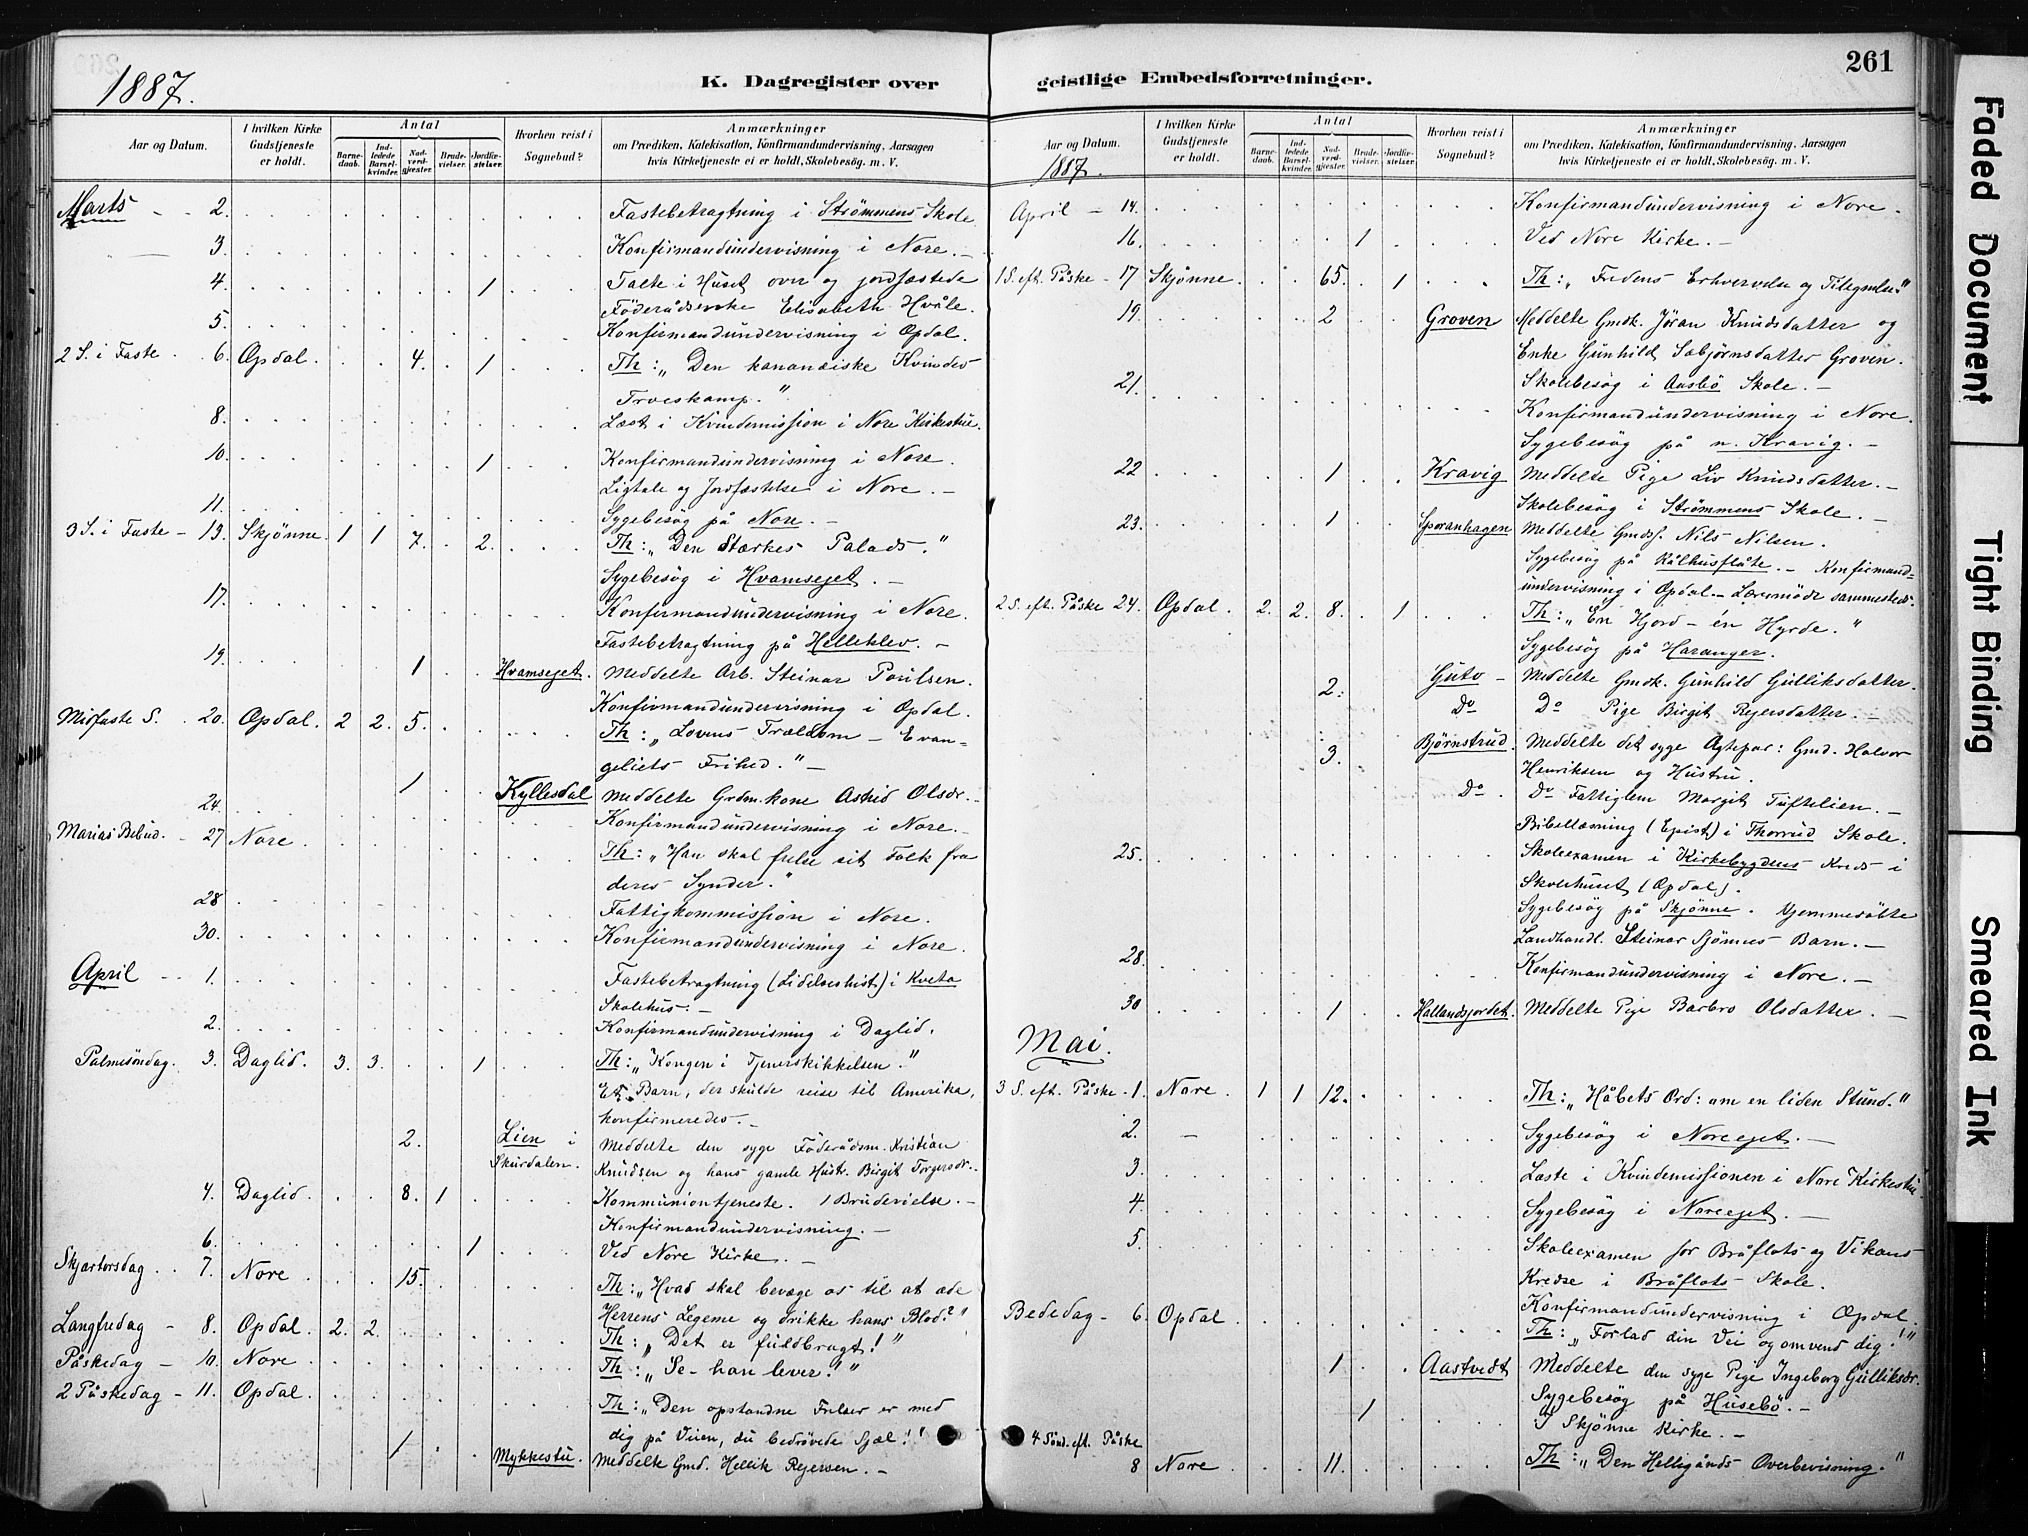 261
1887.
K. Dagregister over
geistlige Embedsforretninger.
Aar og Datum.
I hvilken Kirke Gudstjeneste er holdt.
Antal
Barnedaab.
Indledede Barselkvinder.
Nadverdgjæster.
Brudevielser.
Jordfæstelser.
Hvorhen reist i Sognebud?
Anmærkninger
om Prædiken, Katekisation, Konfirmandundervisning, Aarsagen
hvis Kirketjeneste ei er holdt, Skolebesög. m. V.
Marts 2. Fastebetragtning i Strømmens Skole
3. Konfirmandundervisning i Nore. -
4. 1 Talte i Huset over og jordfæstede
Föderådsenke Elisabeth Hvåle.
5. Konfirmandundervisning i Opdal.
2 S. i Faste 6. Opdal. 4. 1 Th: „Den kananæiske Kvindes
Troeskamp."
8. Læst i Kvindemission i Nore Kirkestue.
10. 1 Konfirmandundervisning i Nore.
Ligtale og Jordfæstelse i Nore. -
11. Sygebesøg på Nore. -
3 S. i Faste - 13. Skjønne. 1 1 7. 2. Th: „Den Stærkes Palads."
Sygebesøg i Hvamsejet. -
17. Konfirmandundervisning i Nore.
Fastebetragtning på Helleklev. -
19. 1 Hvamsejet. Meddelte Arb. Steinar Poulsen.
Konfirmandundervisning i Opdal.
Midfaste S. 20. Opdal. 2 2. 5. Th: „Lovens Trældom - Evan-
geliets Frihed." -
1 Kyllesdal Meddelte Grdm.kone Astrid Olsdr. -
24. Konfirmandundervisning i Nore. -
Marias Bebud. - 27 Nore. Th: „Han skal frelse sit Folk fra
deres Synder."
28 Fattigkommission i Nore.
30. Konfirmandundervisning i Nore.
April 1. Fastebetragtning (Lidelseshist) i Kveta
Skolehus. -
2. Konfirmandundervisning i Daglid.
Palmesöndag. 3. Daglid. 3. 3. 1 Th: „Kongen i Tjenerskikkelsen."
Et Barn, der skulde reise til Amerika,
konfirmeredes. -
2. Lien i Skurdalen. Meddelte den syge Föderådsm. Kristian
Knudsen og hans gamle Hustr. Birgit Torgersdr. -
4. Daglid. 8. 1 Kommuniontjeneste. 1 Brudevielse. -
Konfirmandundervisning. -
6. 1 Ved Nore Kirke. -
Skjærtorsdag 7. Nore 15. Th: „Hvad skal bevæge os til at æde
Herrens Legeme og drikke hans Blod?"
Langfredag - 8. Opdal. 2. 2. Th: „Det er fuldbragt!"
Påskedag - 10. Nore. Th: „Se - han lever!"
2 Påskedag - 11. Opdal. Th: „Den opstandne Frelser er med
dig på Veien, du bedrøvede Sjæl!"
1 Mykkestu. Meddelte Gmd. Hellik Rejersen. -
Aar og Datum.
1887.
I hvilken Kirke Gudstjeneste er holdt.
Antal
Barnedaab.
Indledede Barselkvinder.
Nadverdgjæster.
Brudevielser.
Jordfæstelser.
Hvorhen reist i Sognebud?
Anmærkninger
om Prædiken, Katekisation, Konfirmandundervisning, Aarsagen
hvis Kirketjeneste ei er holdt, Skolebesög. m. V.
April - 14. Konfirmandundervisning i Nore.
16. 1 Ved Nore Kirke. -
1 S. eft. Påske - 17. Skjønne. 65. 1 Th: „Fredens Erhvervelse og Tilegnelse."
19. 2 Groven Meddelte Gmdk. Jøran Knudsdatter og
Enke Gunhild Sæbjørnsdatter Groven.
21. Skolebesög i Aasbö Skole. -
Konfirmandundervisning i Nore.
Sygebesög på n. Kravig. -
22 1 Kravig Meddelte Pige Liv Knudsdatter. -
Skolebesög i Strømmens Skole. -
23. 1 Sporanhagen Meddelte Gmds. Nils Nilsen.
Sygebesög på Kålhusflåte. - Konfirmand-
undervisning i Opdal. - Læremöde sammesteds.
2 S. eft. Påske 24. Opdal. 2. 2. 8. 1 Th: „En Hjord - én Hyrde."
Sygebesög på Haranger.
2. Guto - Meddelte Gmdk. Gunhild Gulliksdatter.
Do Do Pige Birgit Rejersdatter. -
3. Bjørnstrud. Meddelte det syge Ægtepar: Gmd. Halvor
Henriksen og Hustru.
Do. Do Fattiglem Margit Tuftelien. -
Bibellæsning (Epist) i Thorrud Skole.
25. Skoleexamen i Kirkebygdens Kreds i
Skolehuset (Opdal).
Sygebesög på Skjønne. Hjemmedöbte
Landhandl. Steinar Sjönnes Barn. -
28. Konfirmandundervisning i Nore. -
30 1 Hallandsjordet. Meddelte Pige Barbro Olsdatter. -
Mai.
3 S. eft. Påske 1. Nore. 1 1 12. Th: „Håbets Ord: om en liden Stund."
2. - Sygebesög i Noreejet. -
3. Læste i Kvindemissionen i Nore Kirkestue
4. Sygebesög i Noreejet. -
5. Skoleexamen for Bråflots og Vikans
Kredse i Bråflots - Skole.
Konfirmandundervisning i Opdal.
Bededag - 6. Opdal. Th: „Forlad din Vei og omvend dig!"
1 Aastvedt Meddelte den syge Pige Ingeborg Gulliksdr.
Sygebesög på Husebö. -
1 I Skjønne Kirke. -
4 Sönd. eft. Påske
8 Nore. 11. Th: „Den Helligånds Overbevisning."
Faded Document
Tight Binding
Smeared Ink